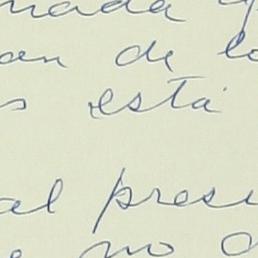 nada
an de lo
s está
al presi
e no a